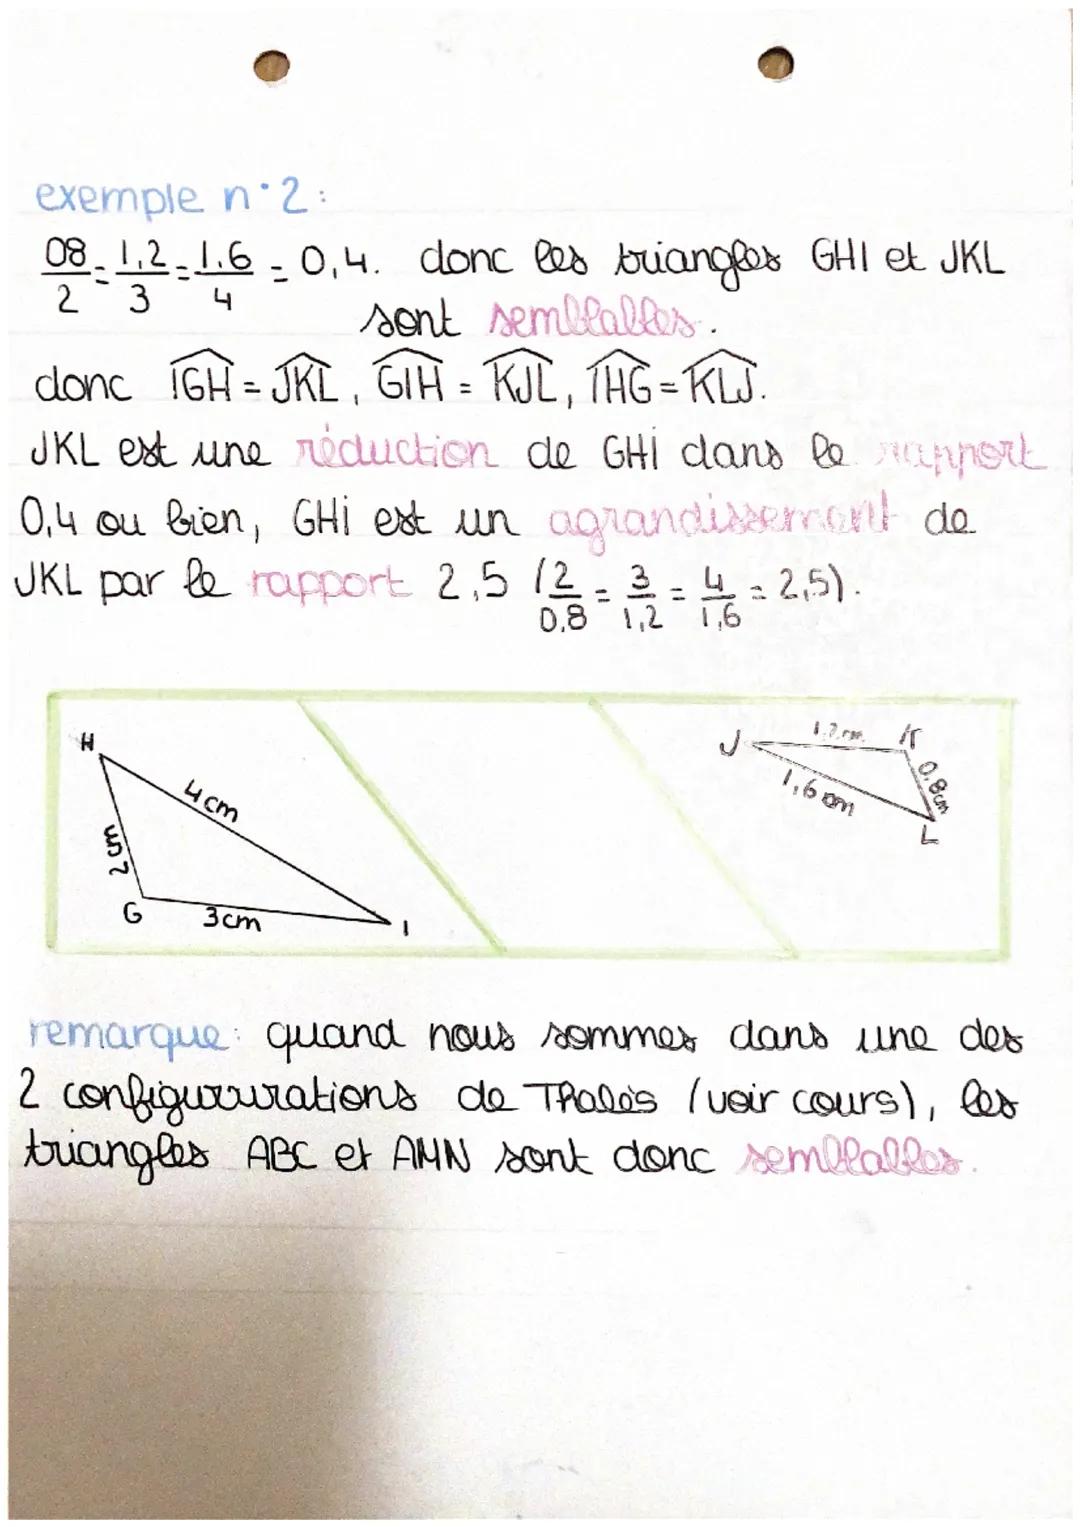 exemple n°2:
08/2 = 1,2/3 = 1,6/4 = 0,4. donc les triangles GHI et JKL
sont semblables.
donc IGH = JKL, GIH = KJL, IHG = KLJ.
JKL est une réduction de GHI dans le rapport
0,4 ou bien, GHI est un agrandissement de
JKL par le rapport 2,5 (2/0,8 = 3/1,2 = 4/1,6 = 2,5).
H
4cm
2
G
3cm
I
J
1,2 cm
K
0,8cm
1,6 cm
L
remarque: quand nous sommes dans une des
2 configururations de Thalès (voir cours), les
triangles ABC et AMN sont donc semblables.